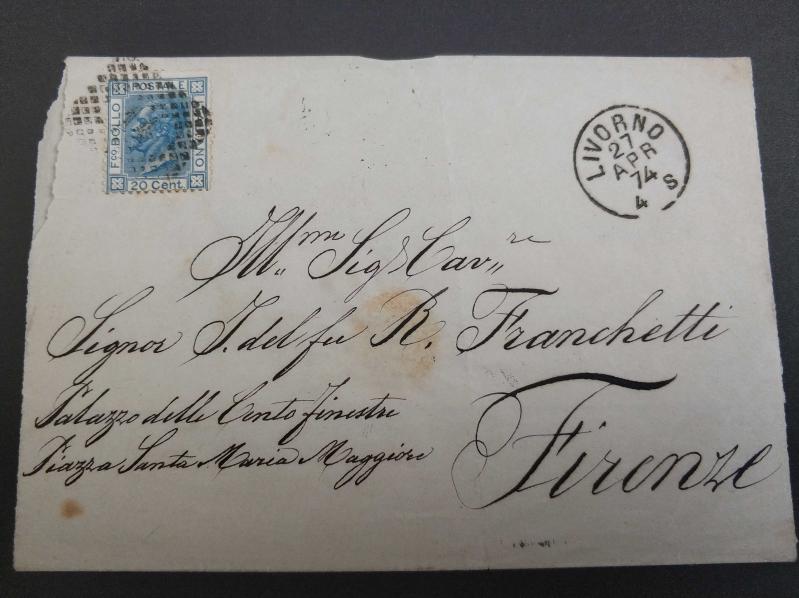 POSTALE
Fco BOLLO
ITALIANO
20 Cent.
LIVORNO
27
APR
74
4 S
Ill„mo Sig Cav„re
Signor J. del fu R. Franchetti
Palazzo delle Cento finestre
Piazza Santa Maria Maggiore
Firenze